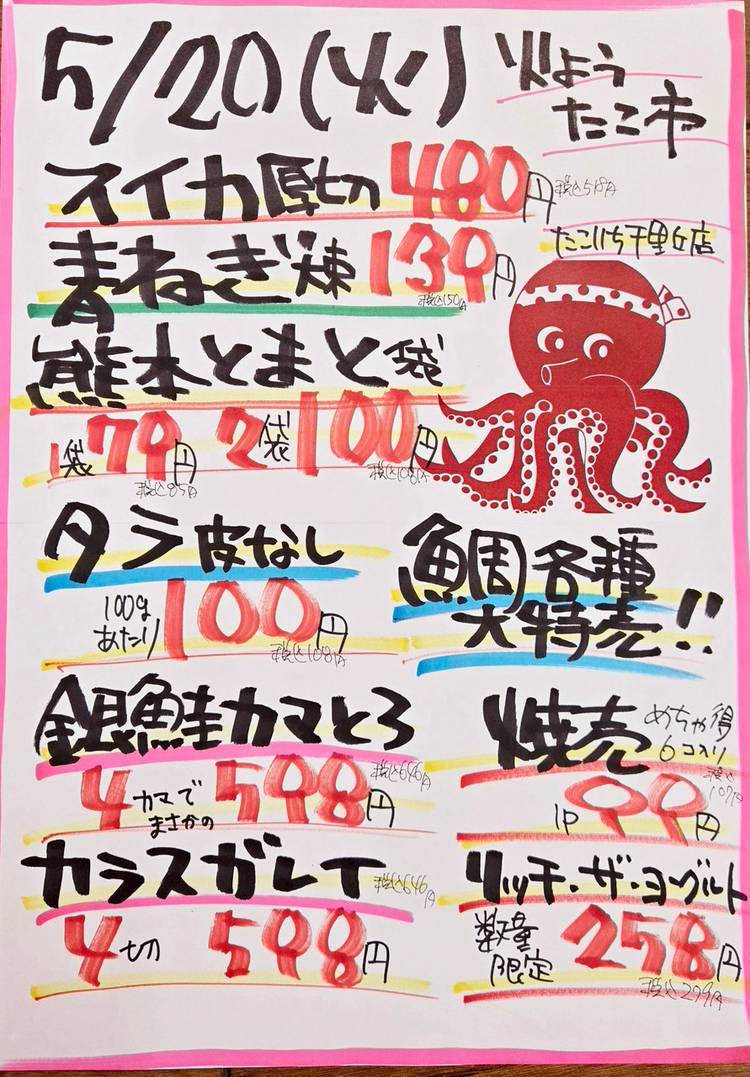 5/20(火)
火よう
たこ市
スイカ厚切 480円 税込518円
たこいち千里丘店
青ねぎ束 139円
税込150円
熊本とまと袋
1袋79円 2袋100円
税込85円 税込108円
タラ皮なし
100gあたり 100円
税込108円
鯛各種
大特売!!
銀鮭カマとろ 税込646円
4カマで まさかの 598円
焼売 めちゃ得 6コ入り
税込107円
1P 99円
カラスガレイ 税込646円
4切 598円
リッチ・ザ・ヨーグルト
数量限定 258円
税込279円